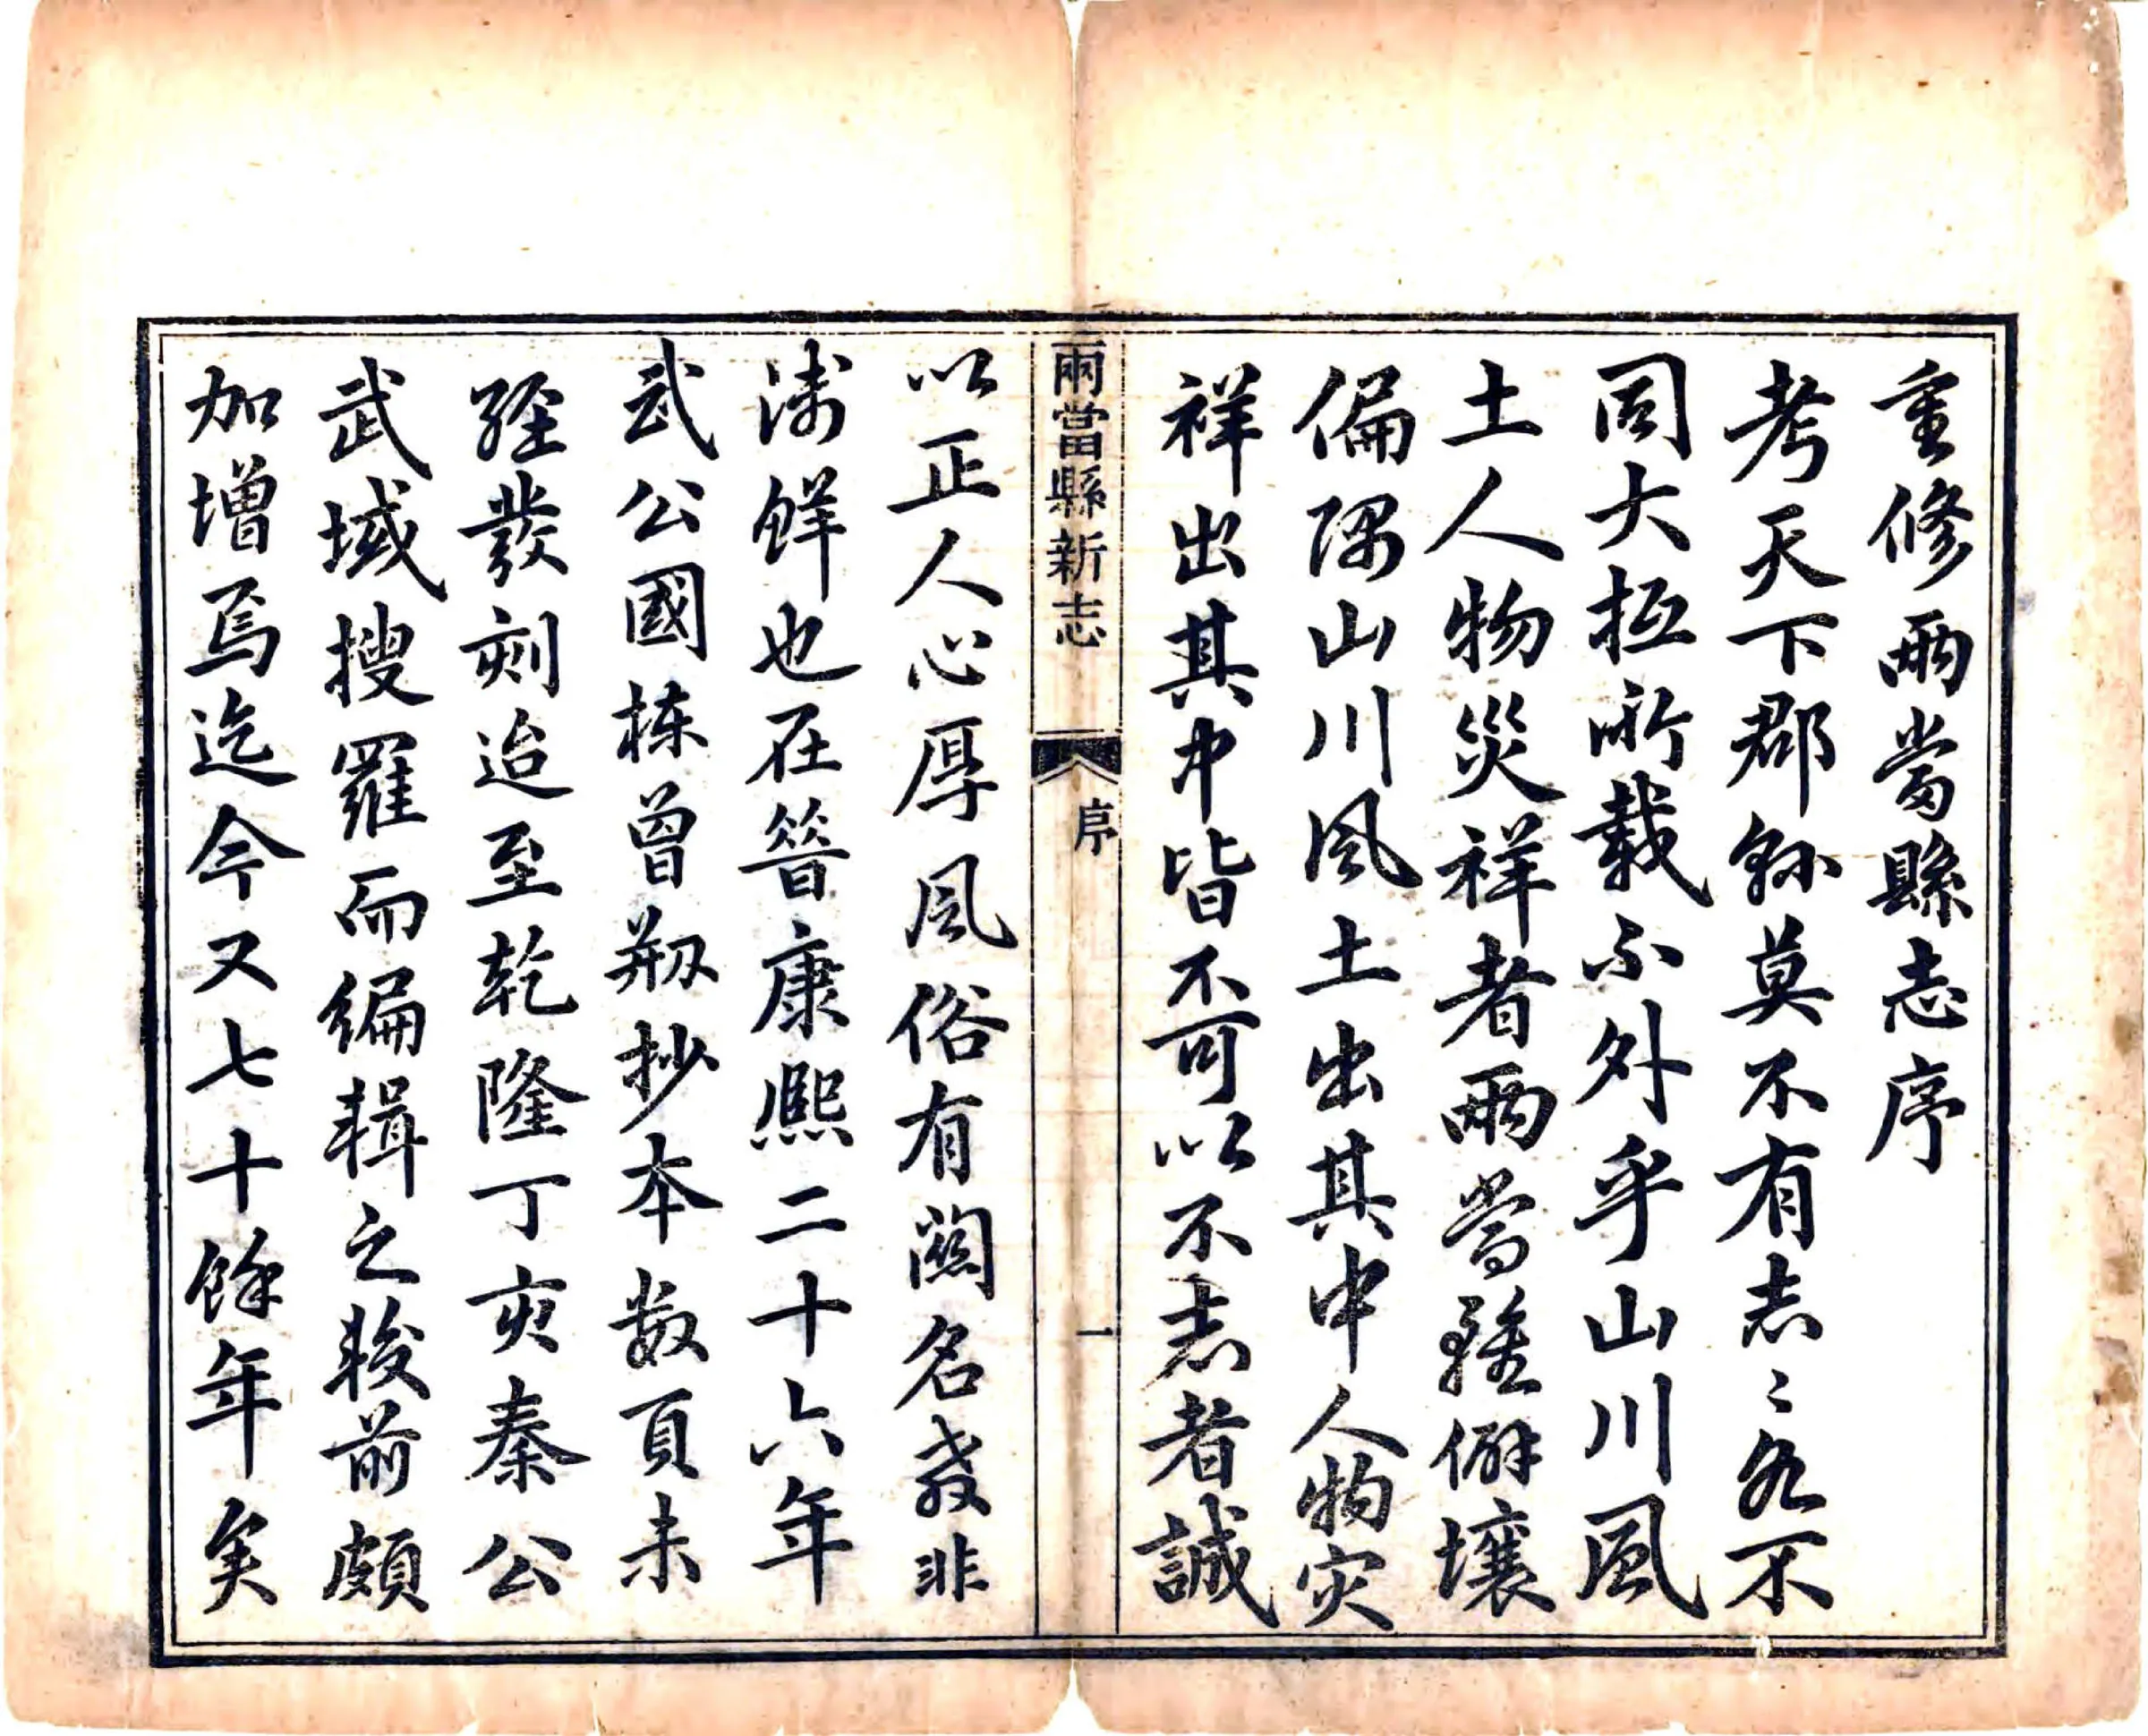 重修兩當縣志序
考天下郡縣莫不有志〻各不
同大抵所載不外乎山川風
土人物災祥者兩當雖僻壤
偏隅山川風土出其中人物灾
祥出其中皆不可以不志者誠
兩當縣新志 序 一
以正人心厚風俗有關名教非
淺鮮也在昔康熙二十六年
武公國棟曾刱抄本數頁未
經發刻迨至乾隆丁亥秦公
武域搜羅而編輯之較前頗
加增焉迄今又七十餘年矣